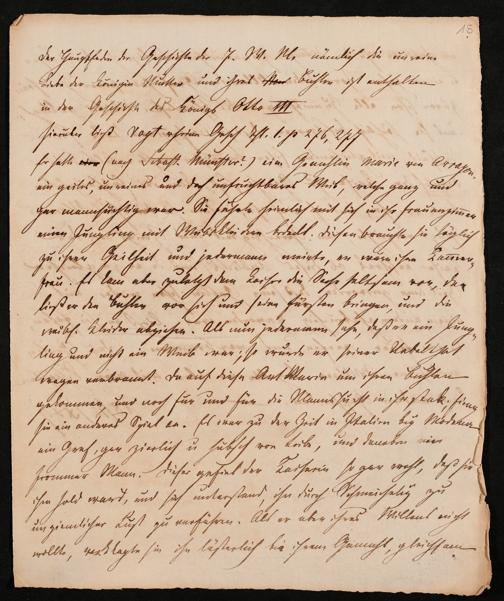 18
Der Hauptfaden der Geschichte der J. W. M. nämlich die unreine
Liebe der Königin Mutter und ihres Buhlen ist enthalten
in der Geschichte des Königs Otto III
hierüber ließt Vogt rhein Gesch. I. p 276, 277
Er hatte (nach Sebast. Münster) eine Gemahlin Maria von Arragon
ein geiles, unreines und doch unfruchtbares Weib, welche ganz und
gar mannsüchtig war. Sie führte heimlich mit sich in ihr Frauenzimmer
einen Jüngling mit Weibskleidern bedeckt. Diesen brauchte sie täglich
zu ihrer Geilheit und jedermann meinte, er wäre ihre Kammer-
frau. Es kam aber zuletzt dem Kaiser die Sache seltsam vor, der
ließ er den Buhlen vor sich und seine Fürsten bringen, und die
weibl. Kleider abziehen. Als nun jedermann sahe, daß er ein Jüng-
ling und nicht ein Weib war, so wurde er seiner Uebelthat
wegen verbrannt. Da auf diese Art Maria um ihren Buhlen
gekommen und noch für und für die Mannssucht in ihr stak, fieng
sie ein anderes Spiel an. Es war zu der Zeit in Italien bey Modena
ein Graf, gar zierlich u hübsch von Leib, und daneben ein
frommer Mann. Dieser gefiel der Kaiserin so gar wohl, daß sie
ihm hold ward, und sich unterstand, ihn durch Schmeicheley zu
unziemlicher Lust zu verführen. Als er aber ihres Willens nicht
wollte, verklagte sie ihn lästerlich bei ihrem Gemahl, gleichsam